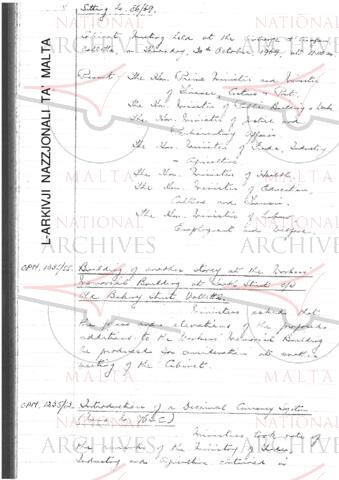 Sitting No. 56/69.
Cabinet Meeting held at the
on Thursday, 30th October, 1969, at
Present: The Hon. Prime Minister and Minister
of Finance, Customs & Port.
The Hon. Minister of Public Building & Works
The Hon. Minister of Justice and
Parliamentary Affairs.
The Hon. Minister of Trade, Industry
& Agriculture.
The Hon. Minister of Health.
The Hon. Minister of Education,
Culture and Tourism.
The Hon. Minister of Labour,
Employment and Welfare.
OPM. Building of another storey at the Workers'
Memorial Building at South Street c/w
Old Bakery Street Valletta.
Ministers asked that
the plans and elevations of the proposed
additions to the Workers' Memorial Building
be produced for consideration at another
meeting of the Cabinet.
OPM. Introduction of a Decimal Currency System
Ministers took note of
the remarks of the Ministry of Trade,
Industry and Agriculture contained in
L-ARKIVJI NAZZJONALI TA' MALTA
NATIONAL
ARCHIVES
MALTA